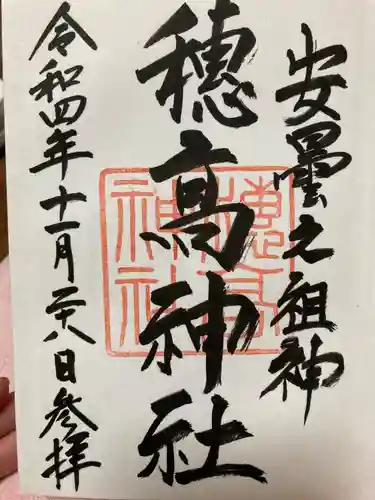 安曇之祖神
穂高神社
穂高神社
令和四年十一月二十八日参拝